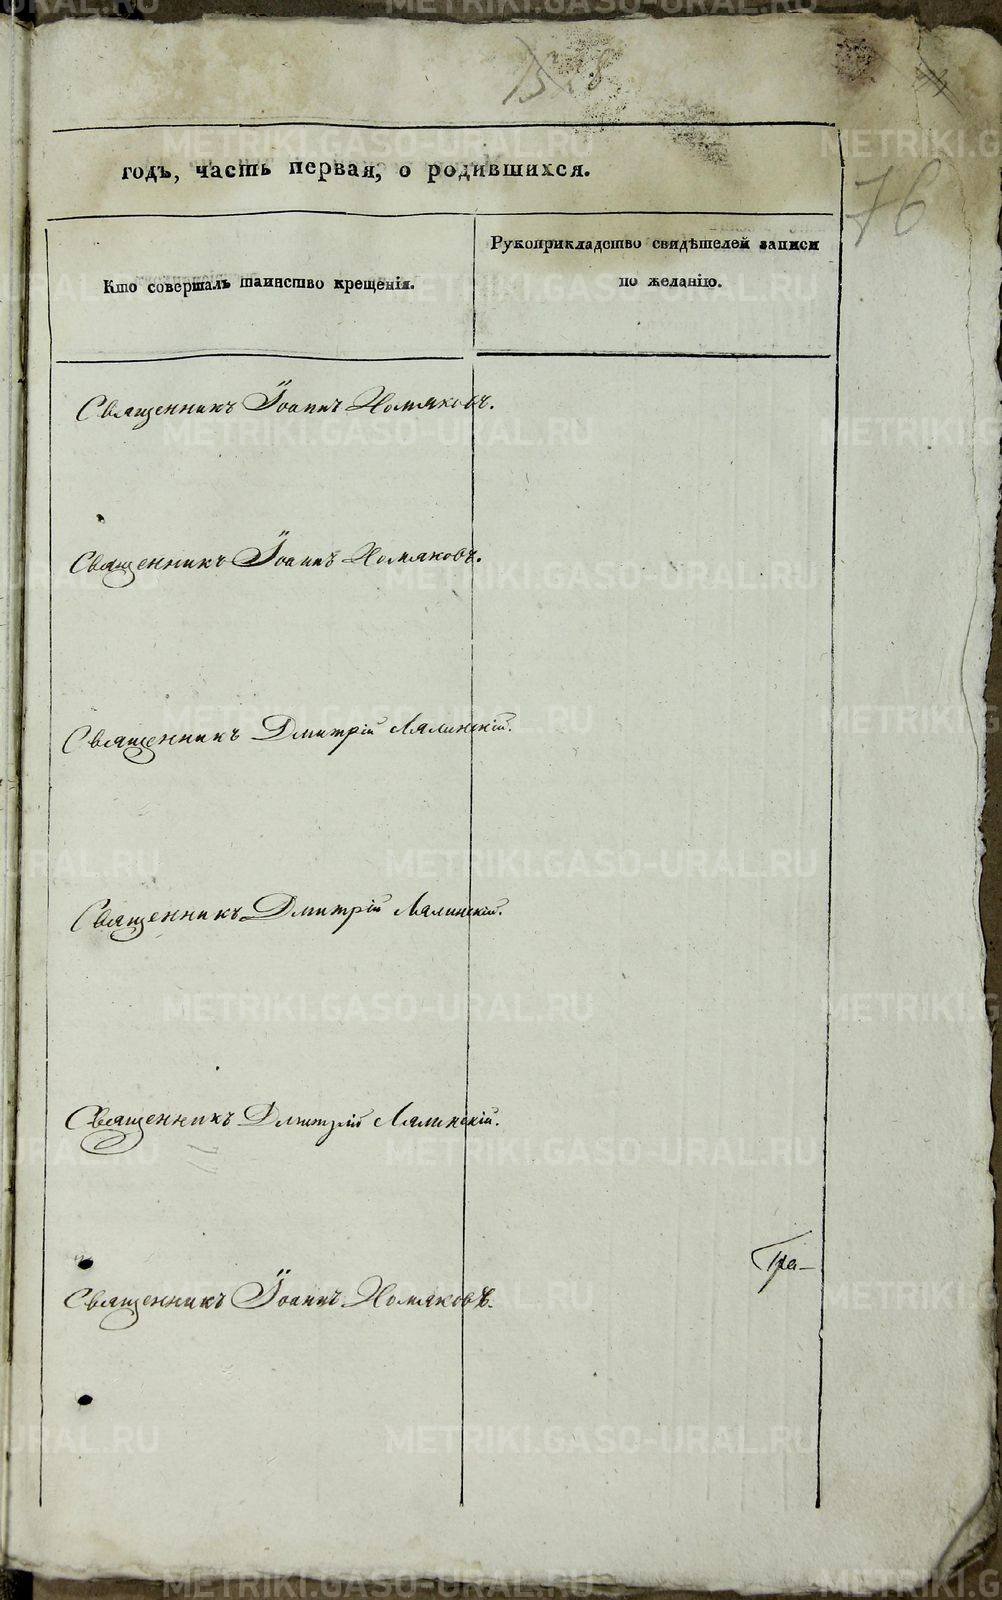 годъ, часть первая, о родившихся.
76
Кто совершалъ таинство крещенія.
Рукоприкладство свидѣтелей записи
по желанію.
Священникъ Іоаннъ Хомяковъ.
Священникъ Іоаннъ Хомяковъ.
Священникъ Дмитрій Лялинскій.
Священникъ Дмитрій Лялинскій.
Священникъ Дмитрій Лялинскій.
Гра-
Священникъ Іоаннъ Хомяковъ.
METRIKI.GASO-URAL.RU